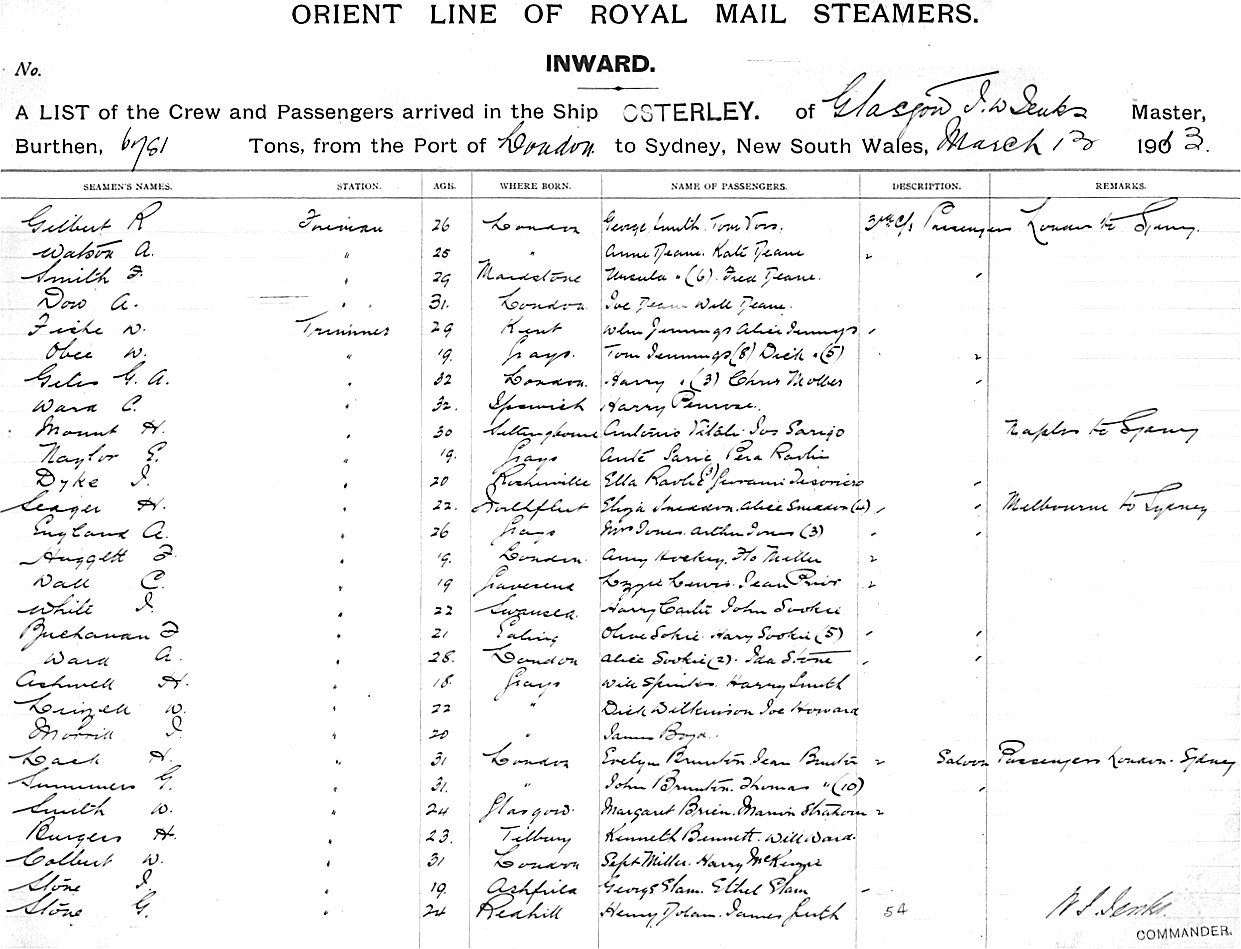 ORIENT LINE OF ROYAL MAIL STEAMERS.
No.
INWARD.
A LIST of the Crew and Passengers arrived in the Ship OSTERLEY. of Glasgow J. W Jenks Master,
Burthen, 6781 Tons, from the Port of London to Sydney, New South Wales, March 13 1903.
SEAMEN'S NAMES. STATION. AGE. WHERE BORN. NAME OF PASSENGERS. DESCRIPTION. REMARKS.
Gilbert R Fireman 26 London George Smith. Tom Voss. 3rd c/s Passengers London to Sydney.
Watson A. " 25 " Anne Deane. Kate Deane "
Smith F. " 29 Maidstone Ursula " (6). Fred Deane. "
Dow A. " 31. London Joe Deane Will Deane.
Fiske W. Trimmer 29 Kent Wm Jennings Alice Jennings "
Obee W. " 19. Grays. Tom Jennings (8) Dick " (5) "
Giles G. A. " 32 London. Harry " (3) Chris Moller "
Ward C. " 32. Ipswich Harry Penrose.
Mount H. " 30 Sittingbourne Antonio Vitali. Jos Sarigo Naples to Sydney
Naylor E. " 19. Grays Ante Saric Pera Ravlic
Dyke J. " 20 Rosherville Ella Ravlic (3) Giovanni "
Seager H. " 22. Northfleet Eliza Sneddon. Alice Sneddon (4) " " Melbourne to Sydney
England A. " 26 Grays Mrs Jones. Arthur Jones (3) " "
Huggett F " 19. London. Amy Hockey. Flo Miller "
Wall C. " 19 Gravesend Lizzie Lewis. Jean Prior "
White J. " 22 Swansea. Harry Carlie John Sookie
Buchanan F " 21 Ealing Olive Sokie. Hary Sookie (5) " "
Ward A. " 28. London Alice Sookie (2). Ida Stone " "
Ashwell H. " 18. Grays Will Spinks. Harry Smith
W. " 22 " Dick Wilkinson Joe Howard
Morrill J. " 20 " James Boyd.
Lack H. " 31 London Evelyn Brunton. Jean Brunton " Saloon Passengers London. Sydney
Summers G. " 31. " John Brunton. Thomas " (10) "
Smith W. " 24 Glasgow. Margaret Brien. Marion Strahorn "
Burgess H. " 23. Tilbury Kenneth Bennett. Will Ward.
Colbert W. " 31 London Sept Miller. Harry McKenzie
Stone J. " 19. Ashfield George Elam. Ethel Elam "
Stone G. " 24 Redhill Henry Dolan. James 54 Jenks.
COMMANDER.